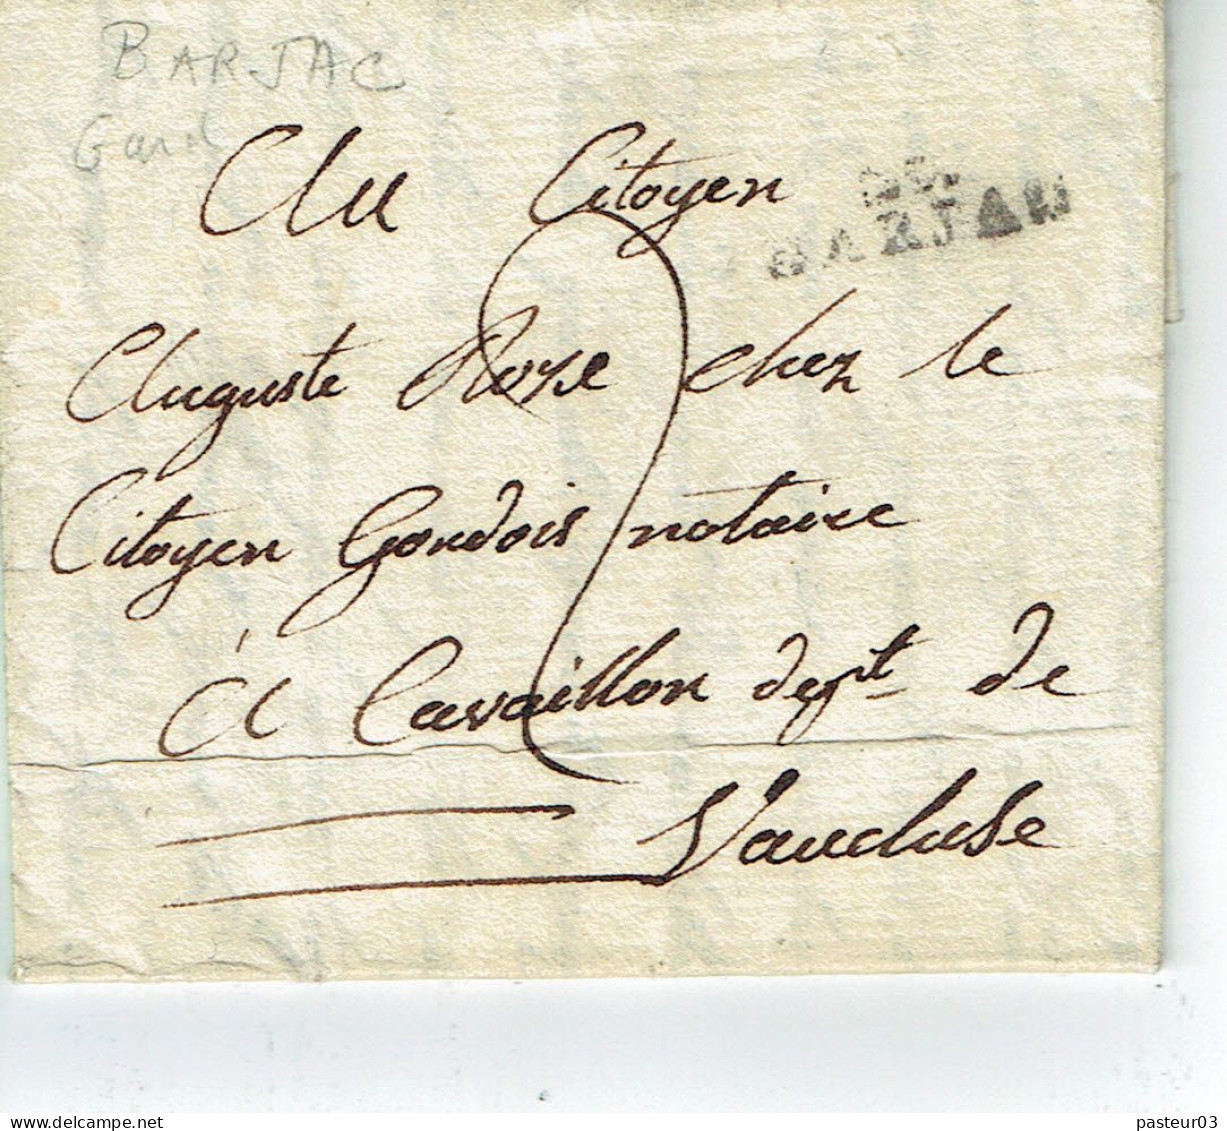 BARJAC
Gard
Au Citoyen
29
BARJAC
Auguste Roze chez le
Citoyen Gondois notaire
à Cavaillon dept. de
Vaucluse
pasteur03